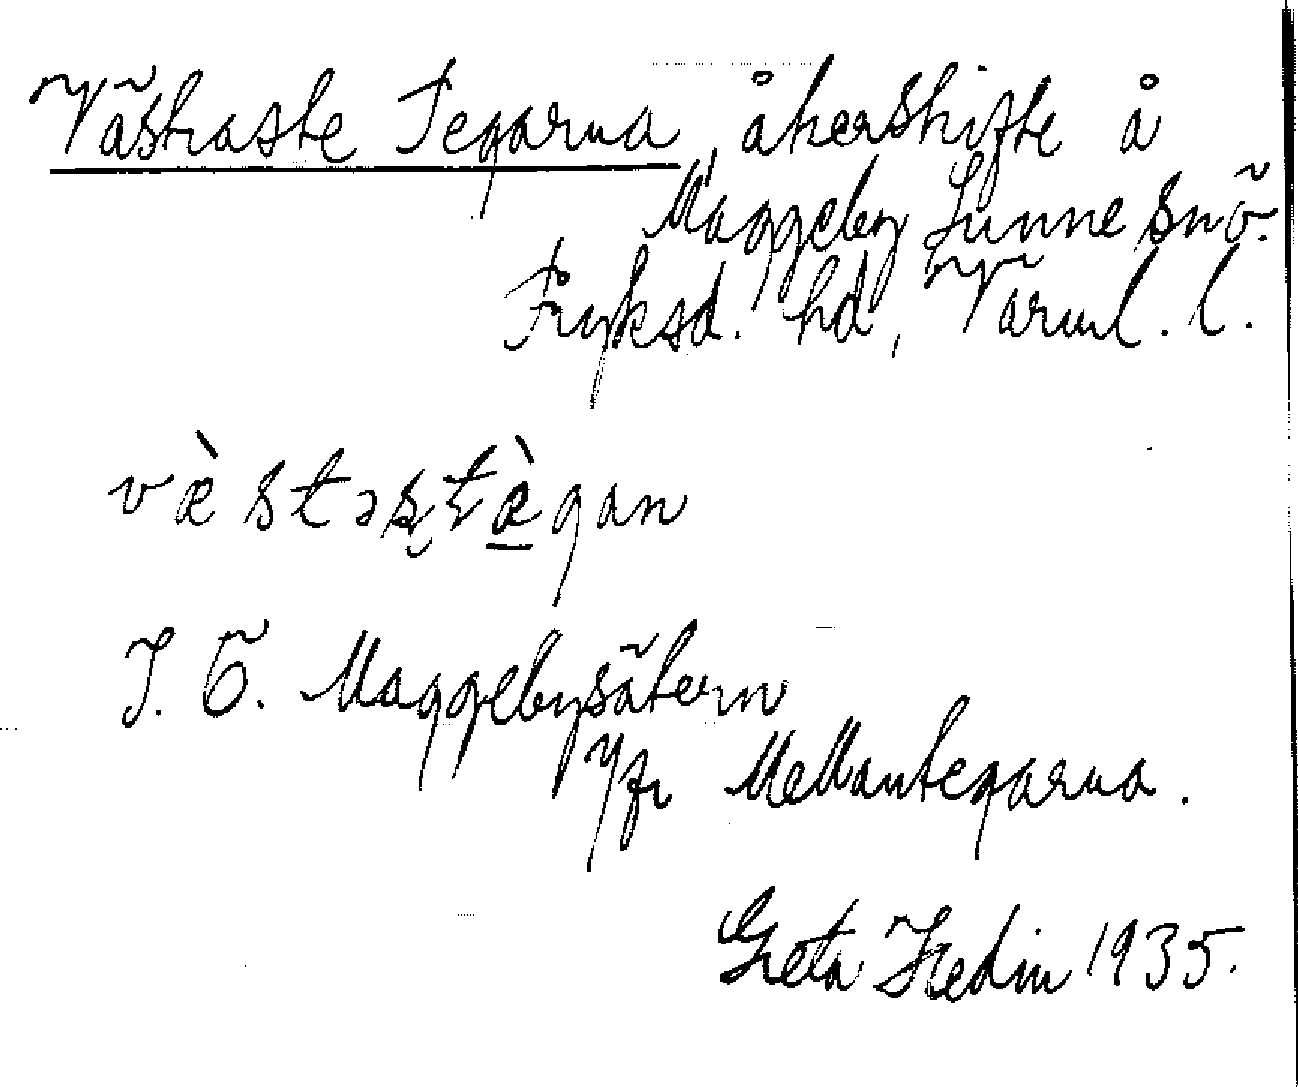 Västraste Tegarna, åkerskifte å
Maggeby Sunne sn ö.
Fryksd. hd, Värml. l.
væ̀stəṣṭæ̀gan
J. Ö. Maggebysätern
Jfr Mellantegarna.
Greta Hedin 1935.